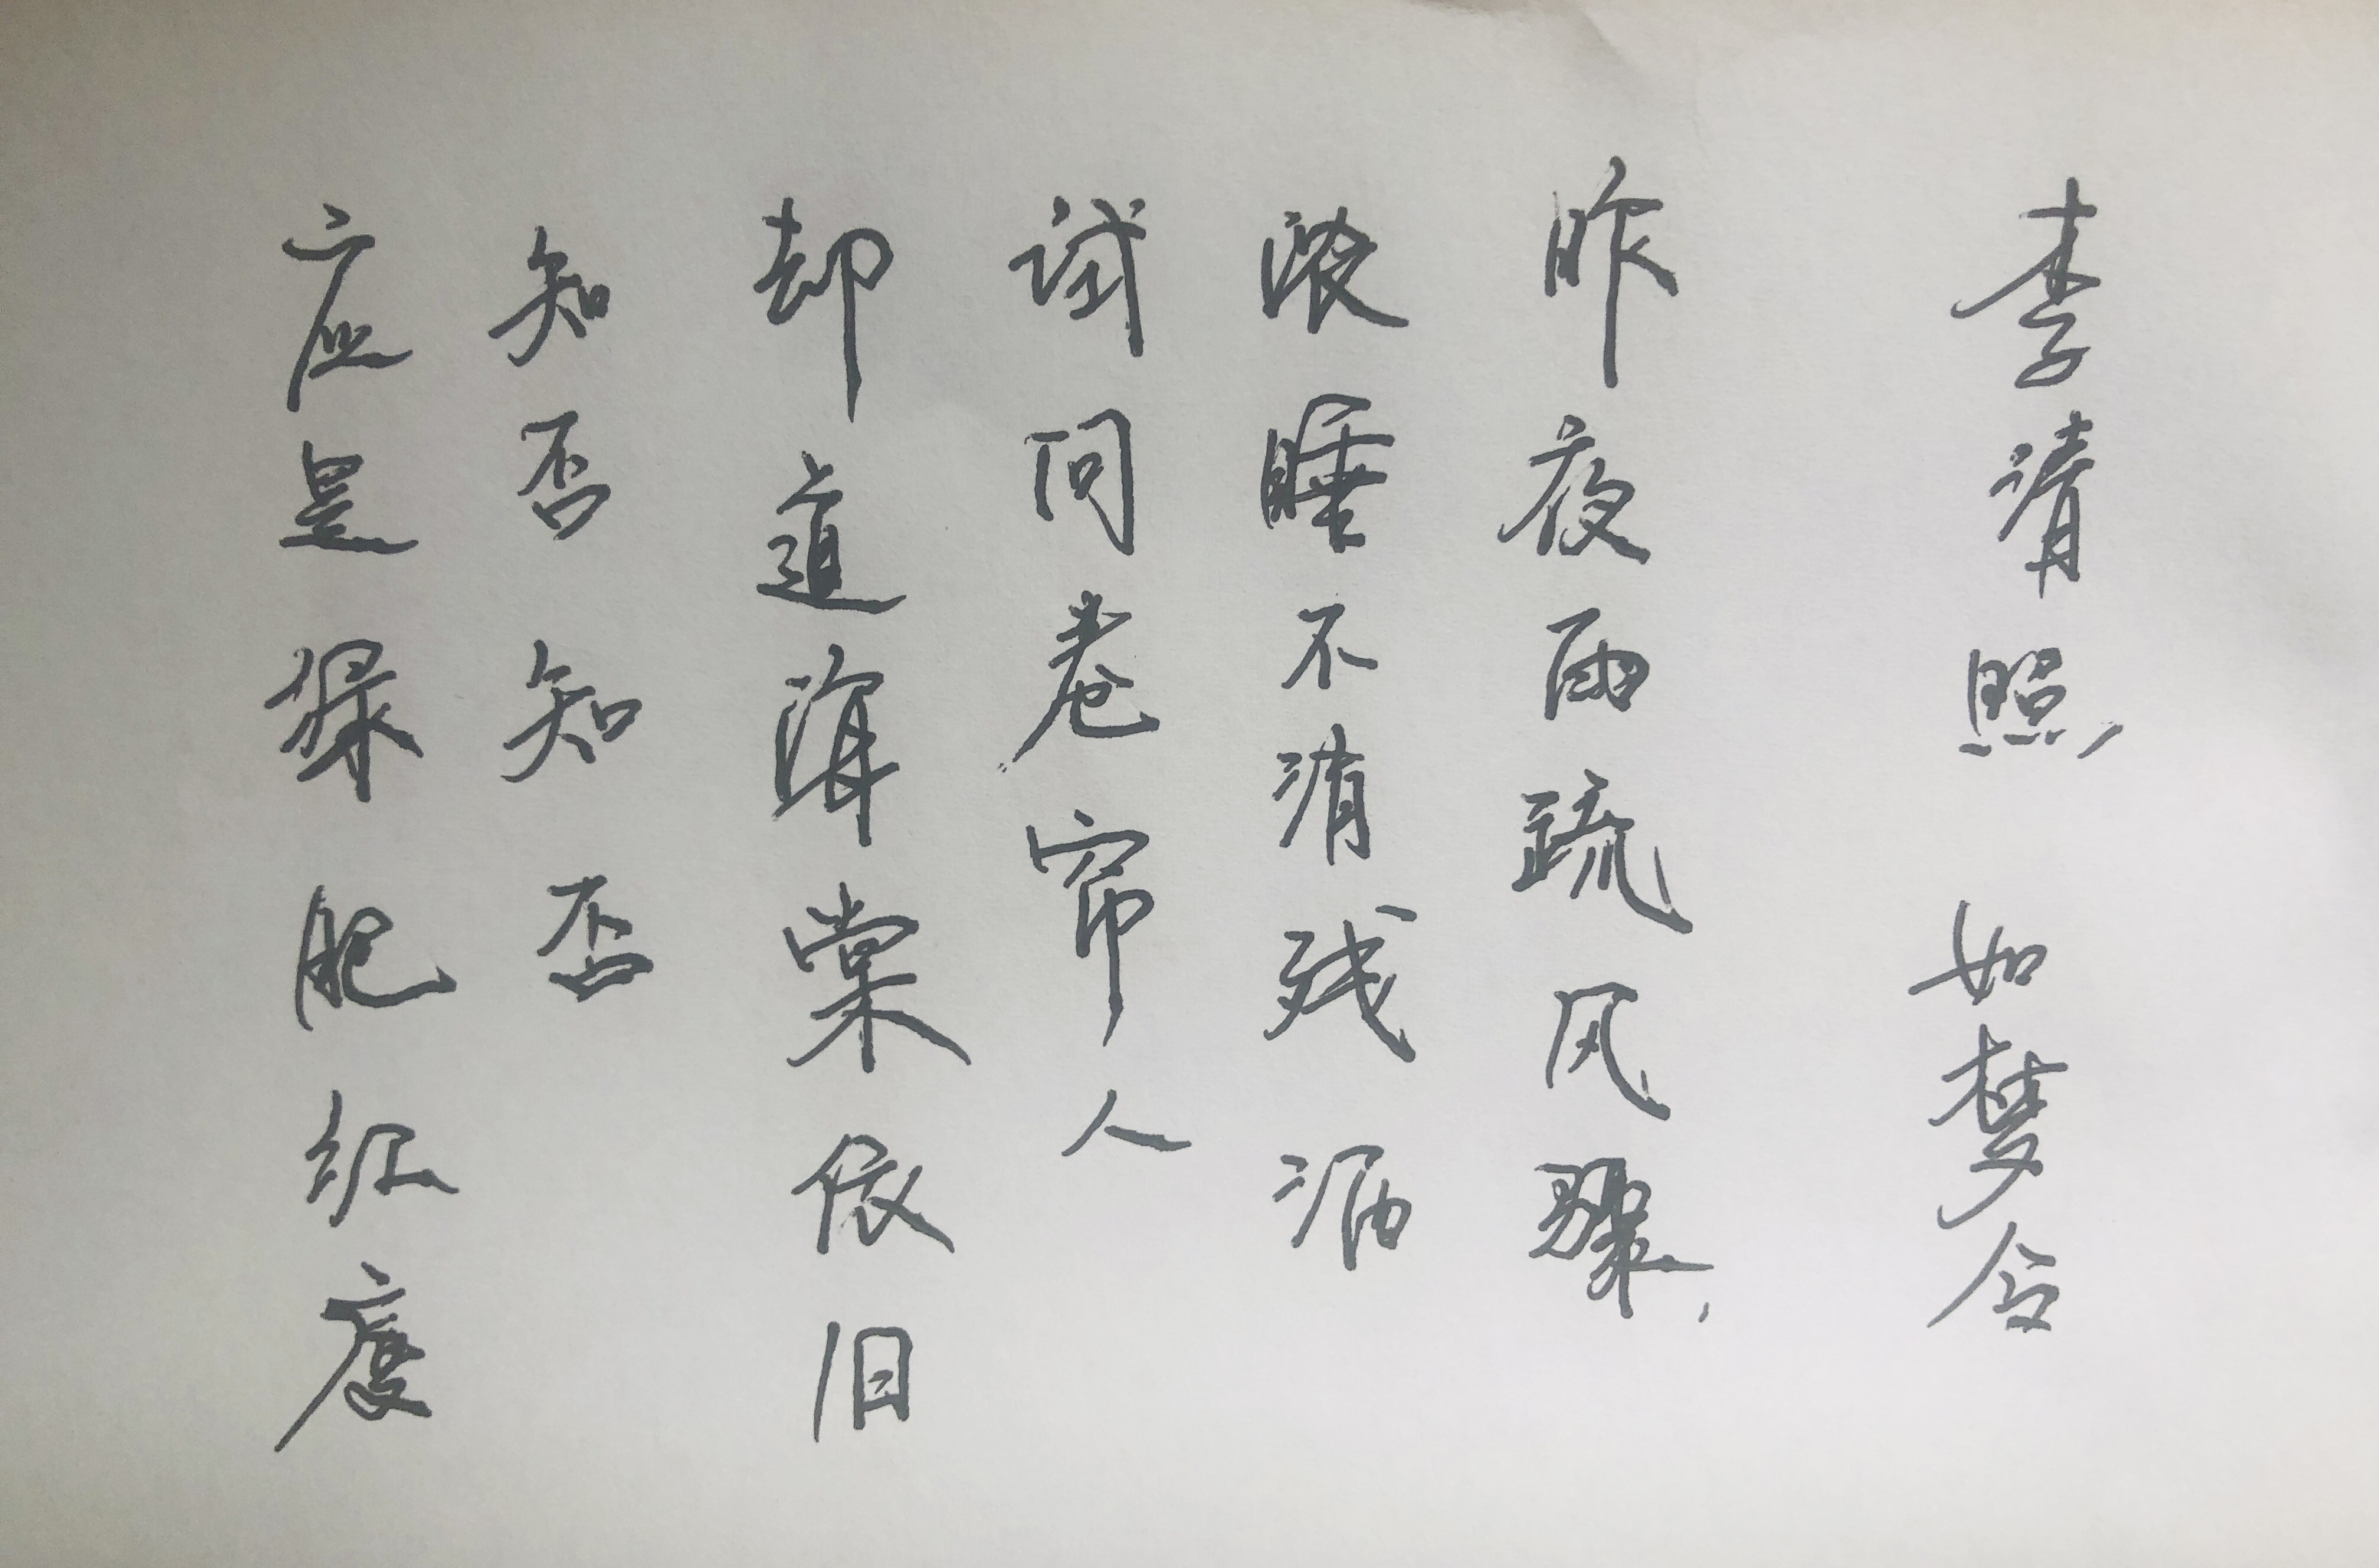 李清照 如梦令
昨夜雨疏风骤,
浓睡不消残酒
试问卷帘人
却道海棠依旧
知否知否
应是绿肥红瘦